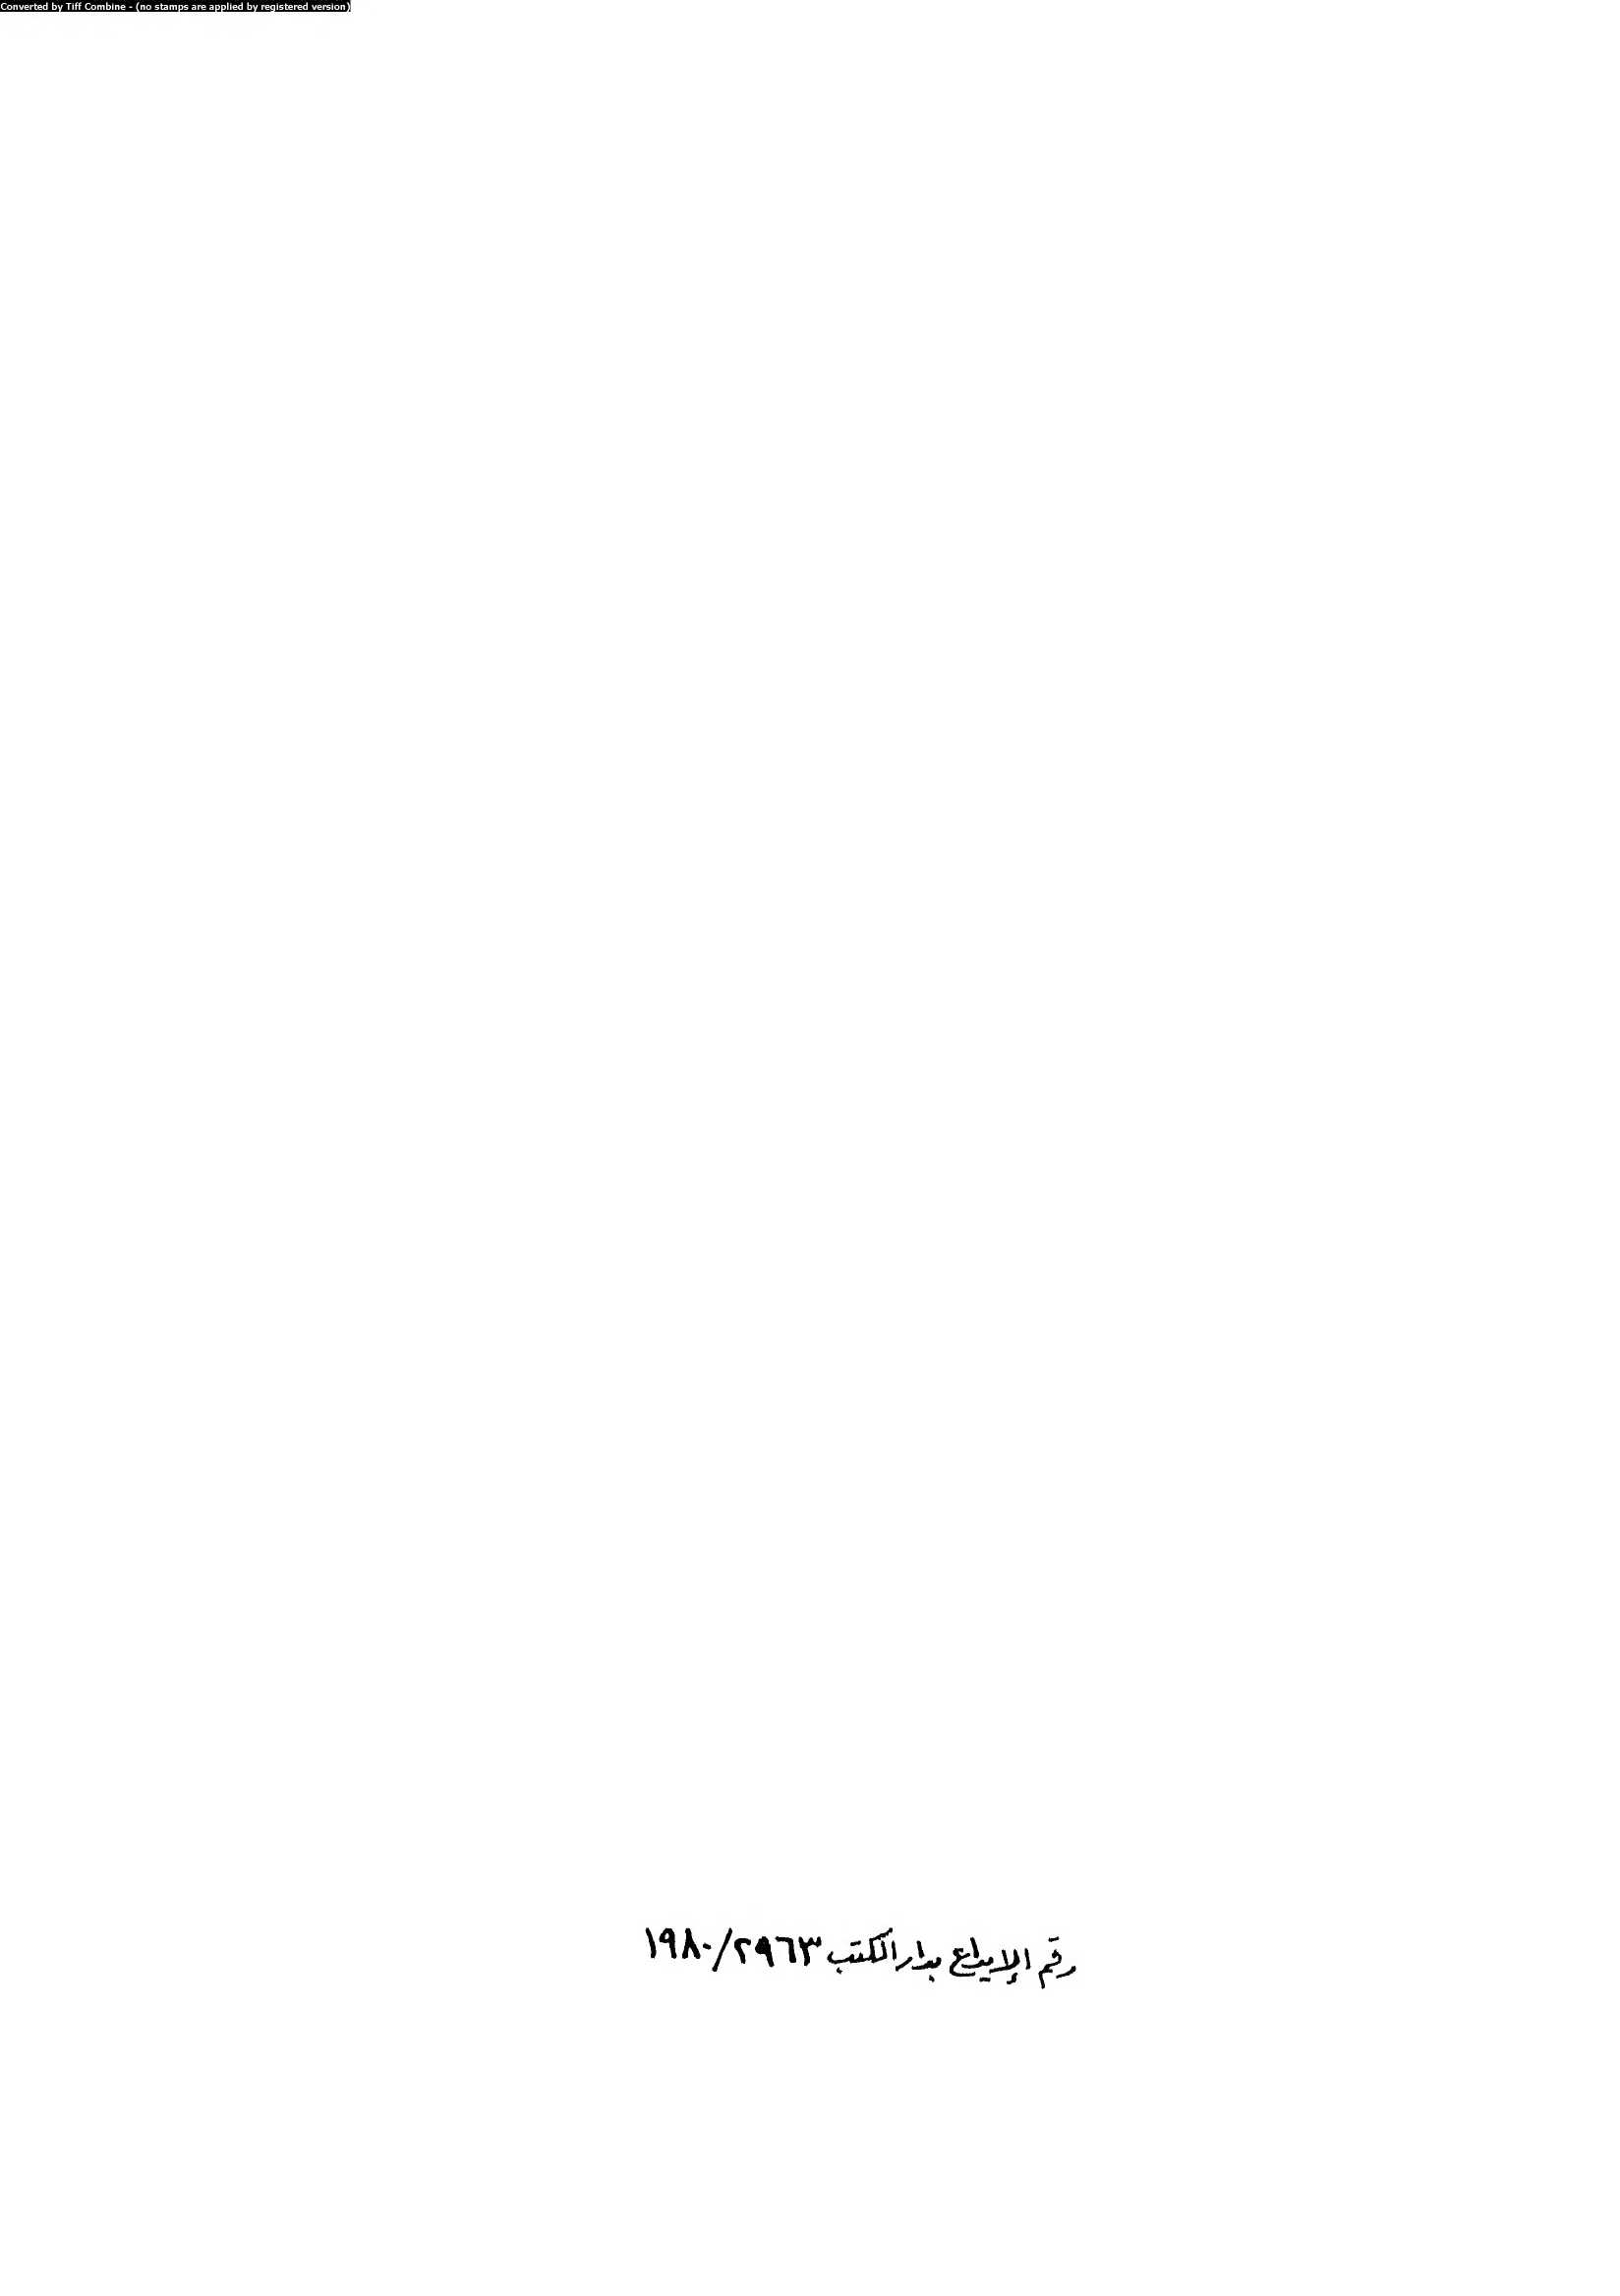 Converted by Tiff Combine - (no stamps are applied by registered version)
رقم الإيداع بدار الكتب ٢٩٦٣/١٩٨٠